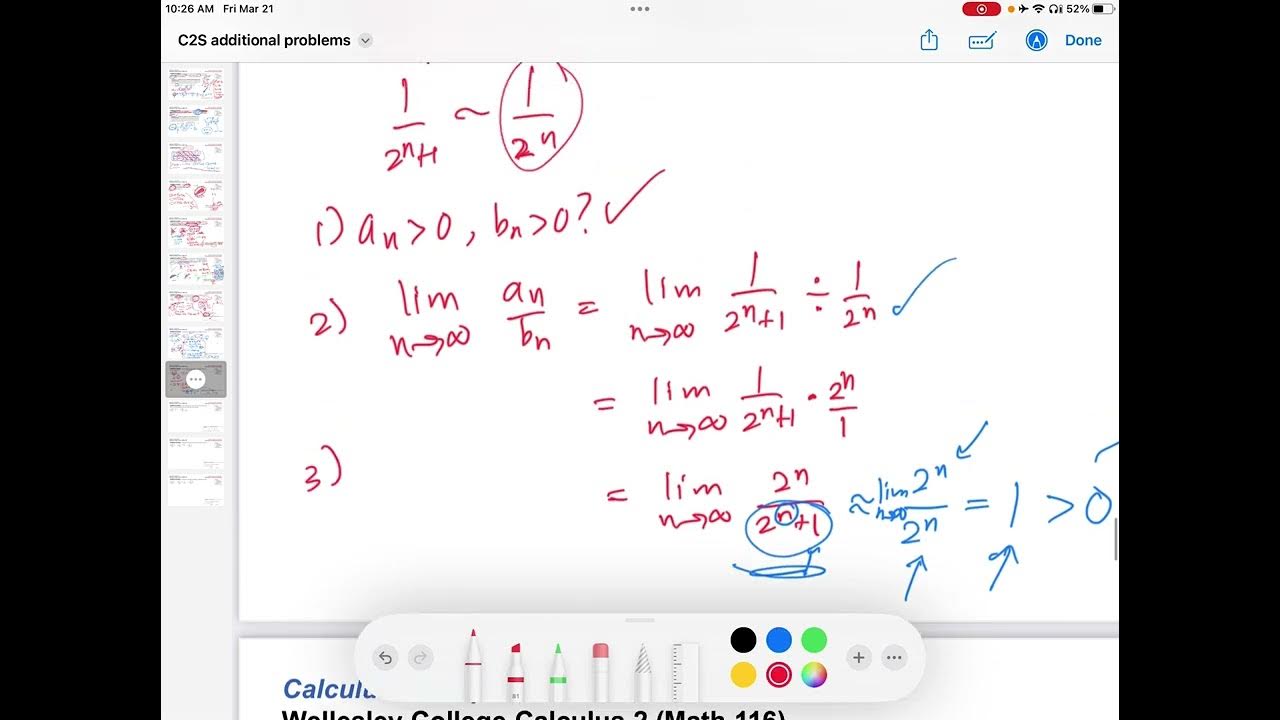 10:26 AM Fri Mar 21
52%
C2S additional problems
Done
1/(2^n+1) ~ 1/2^n
1) aₙ > 0, bₙ > 0? ✓
2) lim n→∞ aₙ/bₙ = lim n→∞ 1/(2^n+1) ÷ 1/2^n ✓
= lim n→∞ 1/(2^n+1) · 2^n/1
3)
= lim n→∞ 2^n/(2^n+1) ≈ lim n→∞ 2^n/2^n = 1 > 0
81
Calcul
Wellesley College Calculus 2 (Math 116)